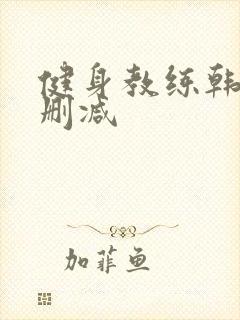 健身教练韩
删减
加菲鱼